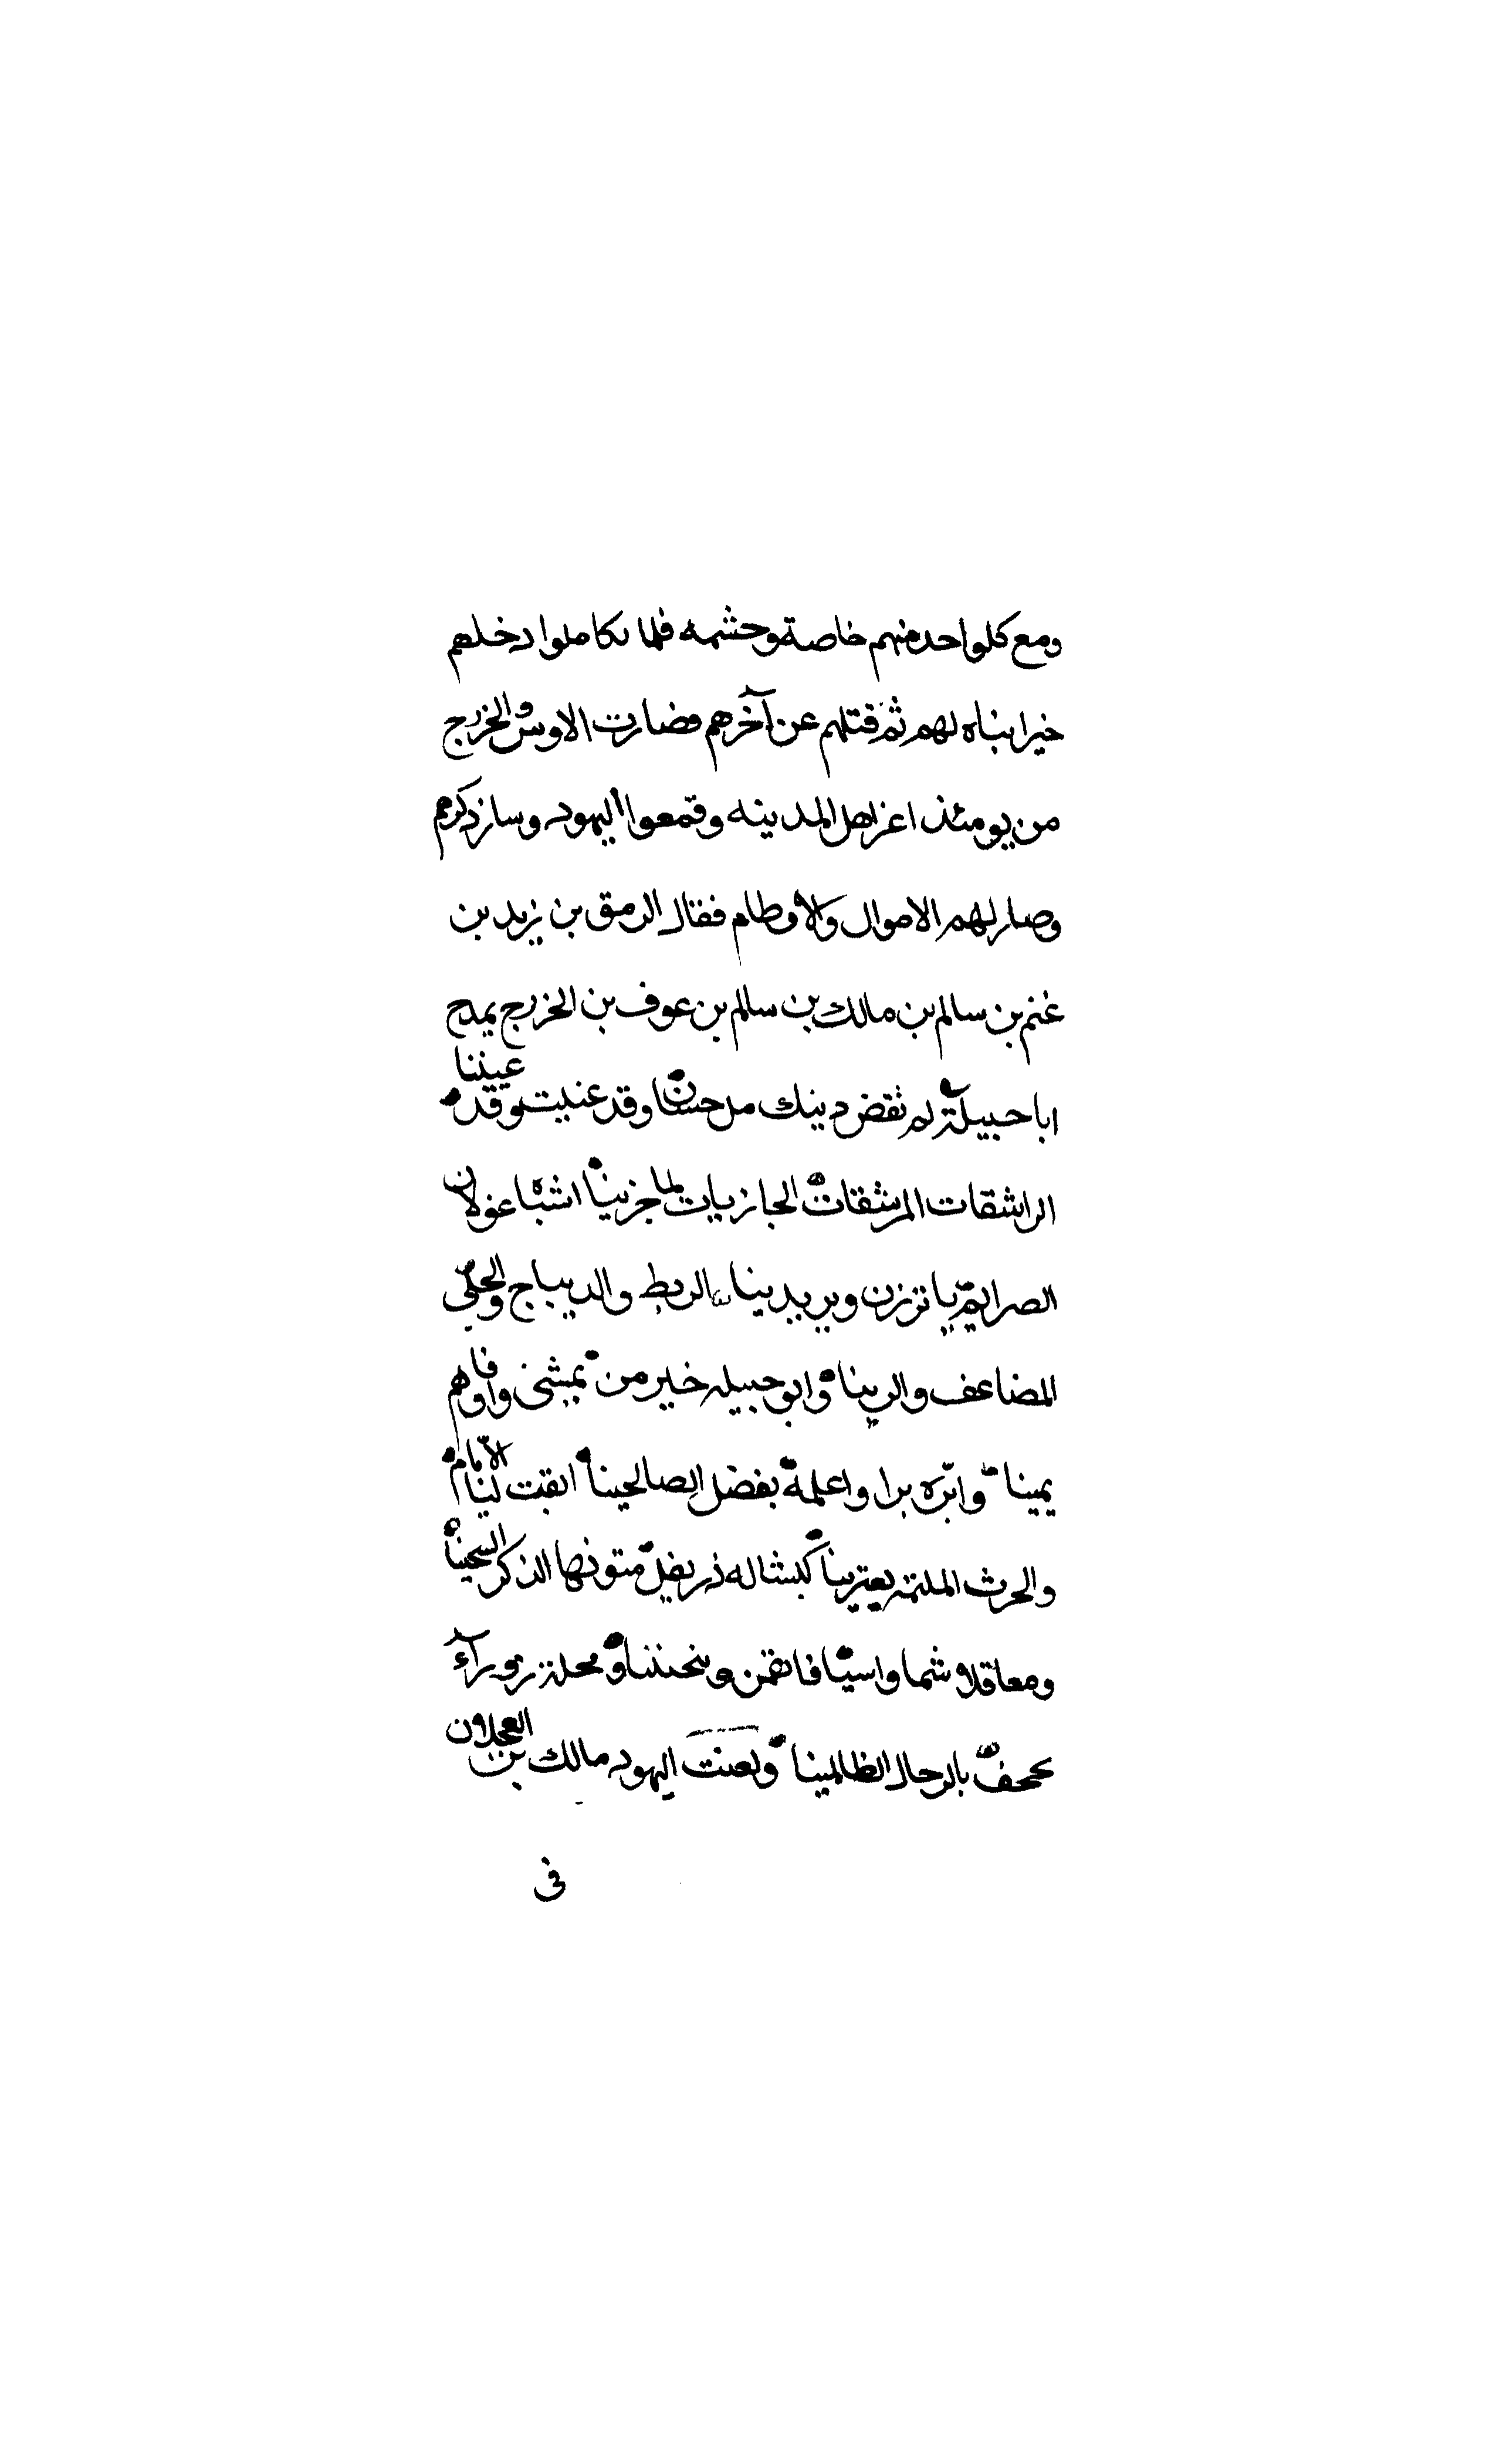 ومع كلواحد منهم خاصة وحشمه فلما تكاملوا دخلهم
خيرا بناه لهم ثم قتلهم عن آخرهم فضارت الاوس والخزرج
من يومئذ اعز اهل المدينه وقمعوا اليهود وسار ذكرهم
وصار لهم الاموال والاوطام فقال الرمق بن زيد بن
غنم بن سالم بن مالك بن سالم بن عوف بن الخزرج يمدح
ابا جبيلة لم تقض دينك من حسان وقد عنيت وقد عيننا
الراشقات المرشقات الجازيات لما جزينا اشباه غزلان
الصرايم ياتزرن ويريدينا الربط والديباج والحلي
المضاعف والرينا وابو جبيله خير من يمشى واوفاهم
يمينا وابره برا واعلمه بفضل الصالحينا ابقت لنا الايام
والحرث الملمة يعترينا كبشا له ذر يفل متونها الذكر السجينا
ومعاقلا شما واسيافا يقمن وينحنينا ومحلة زورآء
تجحف بالرجال الظالمينا ولعنت اليهود مالك بن العجلان
فى